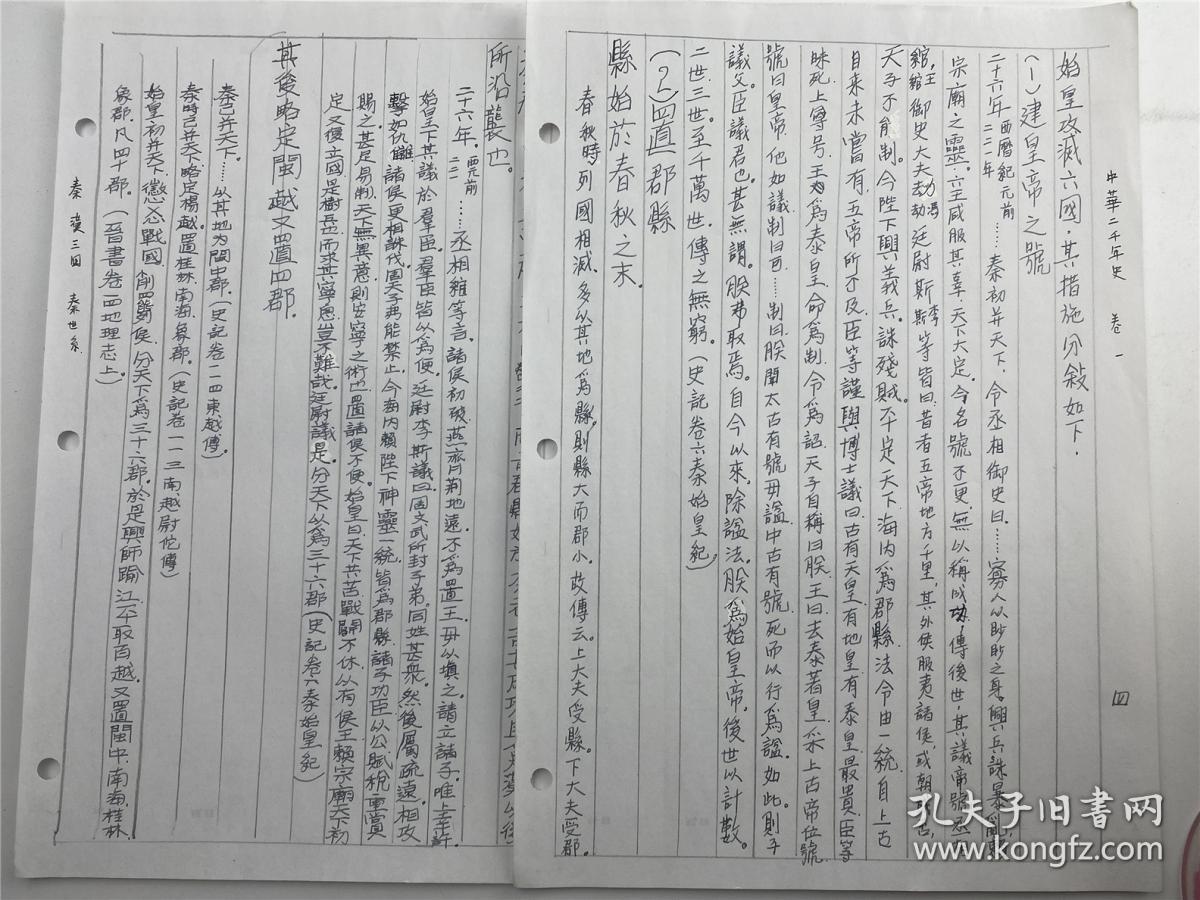 中華二千年史 卷一 四
始皇攻滅六國，其措施分敘如下．
(一)建皇帝之號
二十六年 西曆紀元前二二一年 ……秦初并天下，令丞相御史曰……寡人以眇眇之身，興兵誅暴亂，賴
宗廟之靈，六王咸服其辜，天下大定。今名號不更，無以稱成功，傳後世，其議帝號。丞相
綰，王綰 御史大夫劫，馮劫 廷尉斯，李斯 等皆曰，昔者五帝地方千里，其外侯服夷，諸侯，或朝或否，
天子不能制。今陛下興義兵，誅殘賊，平定天下，海內爲郡縣，法令由一統，自上古
自來未嘗有，五帝所不及，臣等謹與博士議曰，古有天皇有地皇有泰皇，最貴，臣等
昧死上尊号，王爲泰皇，命爲制，令爲詔，天子自稱曰朕，王曰，去泰著皇，采上古帝位號
號曰皇帝，他如議，制曰可……制曰，朕聞太古有號毋謚，中古有號，死而以行爲謚，如此，則子
議父，臣議君也，甚無謂，朕弗取焉。自今以來，除謚法，朕爲始皇帝，後世以計數。
二世三世，至千萬世，傳之無窮。(史記卷六秦始皇紀)
(2)置郡縣
縣始於春秋之末．
春秋時列國相滅，多以其地爲縣，則縣大而郡小，故傳云，上大夫受縣，下大夫受郡．
所沿襲也。
二十六年，西元前二二一……丞相綰等言，諸侯初破，燕齊荆地遠，不爲置王，毋以填之，請立諸子，唯上幸許，
始皇下其議於羣臣，羣臣皆以爲便。廷尉李斯議曰，周文武所封子弟，同姓甚衆，然後屬疏遠，相攻
擊如仇讎，諸侯更相誅伐，周天子弗能禁止，今海內賴陛下神靈一統，皆爲郡縣，諸子功臣以公賦稅重賞
賜之，甚足易制，天下無異意，則安寧之術也，置諸侯不便。始皇曰，天下共苦戰鬪不休，以有侯王，賴宗廟天下初
定，又復立國，是樹兵也，而求其寧息，豈不難哉，廷尉議是。分天下以爲三十六郡(史記卷六秦始皇紀)
其後略定閩越又置四郡．
秦已并天下……以其地为閩中郡．(史記卷一一四東越傳)
秦時已并天下，略定楊越，置桂林，南海，象郡．(史記卷一一三南越尉佗傳)
始皇初并天下，懲忿戰國，削罷列侯，分天下爲三十六郡，於是興師踰江，平取百越，又置閩中，南海，桂林，
象郡，凡四十郡．(晉書卷一四地理志上)
秦漢三國 秦世系
孔夫子旧書网
www.kongfz.com